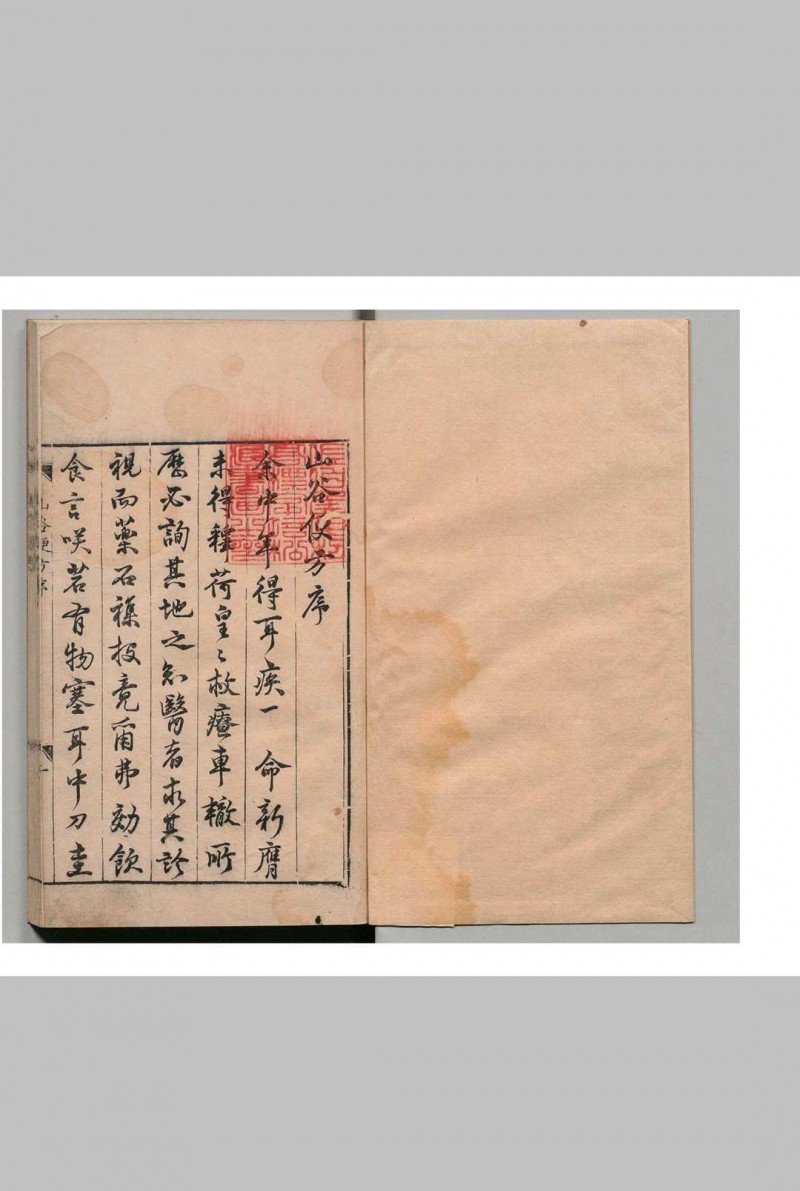 山谷便方序
余中年得耳疾一 命新膺
未得釋荷皇〻救療車轍所
歷必詢其地之知醫者求其診
視而藥石襍投竟爾弗効飲
食言咲若有物塞耳中刀圭
山谷便方序
一